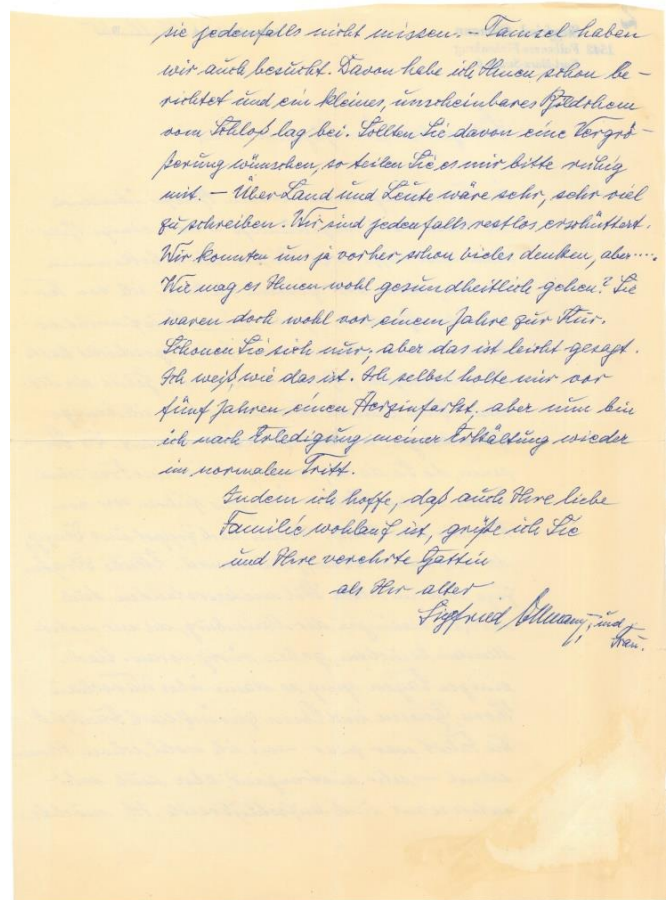 sie jedenfalls nicht missen. – Tamsel haben
wir auch besucht. Davon habe ich Ihnen schon be-
richtet und ein kleines, unscheinbares Bildchem
vom Schloß lag bei. Sollten Sie davon eine Vergrö-
ßerung wünschen, so teilen Sie es mir bitte ruhig
mit. – Über Land und Leute wäre sehr, sehr viel
zu schreiben. Wir sind jedenfalls restlos erschüttert.
Wir konnten uns ja vorher schon vieles denken, aber.....
Wie mag es Ihnen wohl gesundheitlich gehen? Sie
waren doch wohl vor einem Jahre zur Kur.
Schonen Sie sich nur, aber das ist leicht gesagt.
Ich weiß, wie das ist. Ich selbst holte mir vor
fünf Jahren einen Herzinfarkt, aber nun bin
ich nach Erledigung meiner Erkältung wieder
im normalen Tritt.
Indem ich hoffe, daß auch Ihre liebe
Familie wohlauf ist, grüße ich Sie
und Ihre verehrte Gattin
als Ihr alter
Siegfried und
Frau.